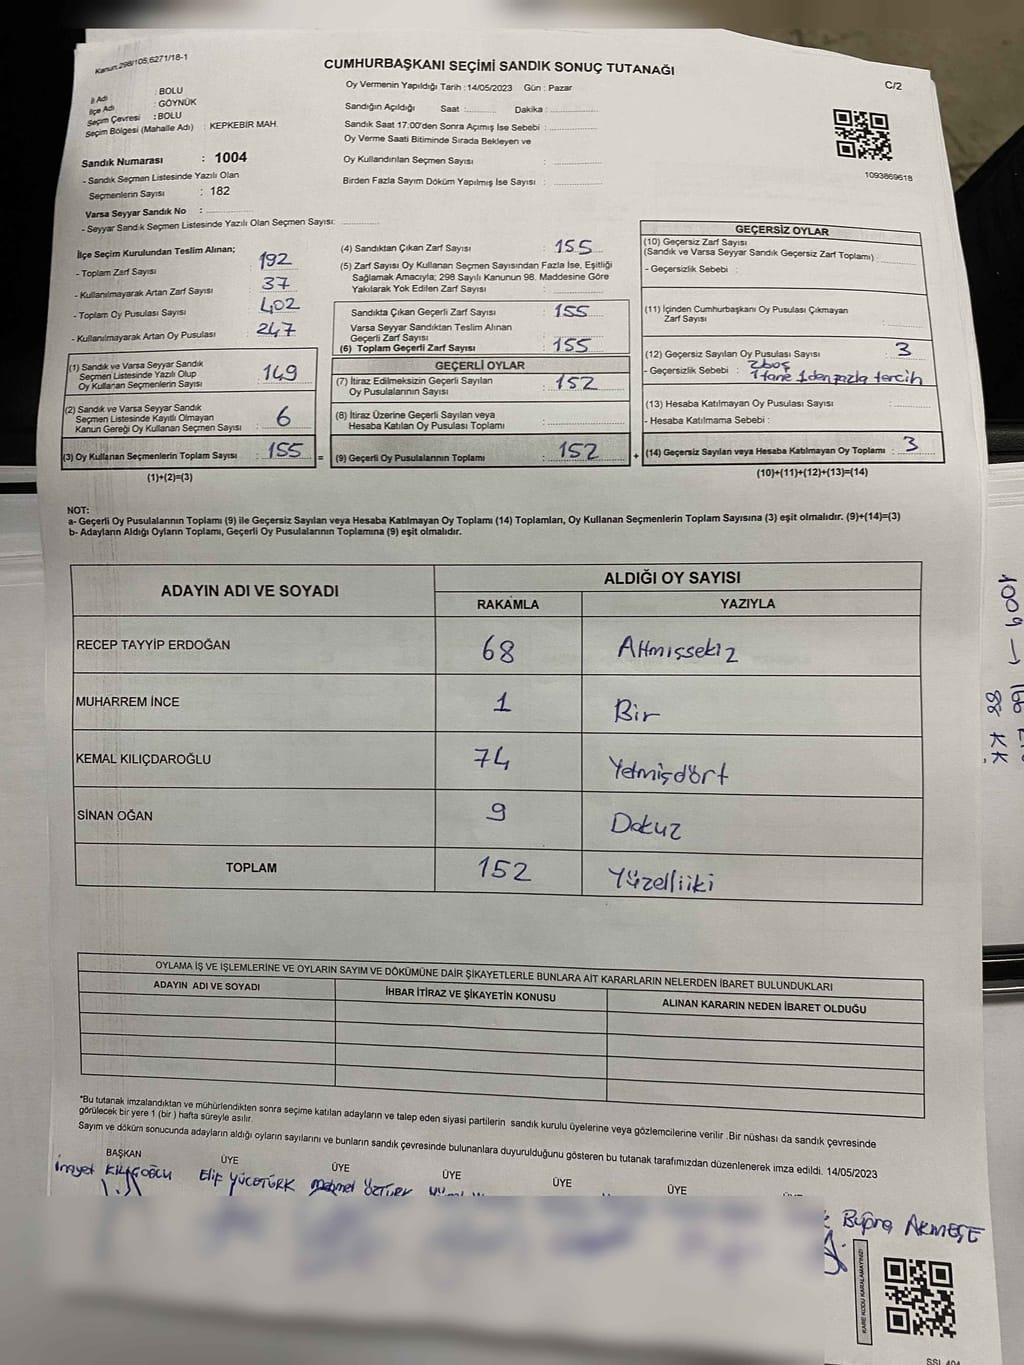 Kanun.298/105,6271/18-1
CUMHURBAŞKANI SEÇİMİ SANDIK SONUÇ TUTANAĞI
C/2
İl Adı : BOLU
İlçe Adı : GÖYNÜK
Seçim Çevresi : BOLU
Seçim Bölgesi (Mahalle Adı) : KEPKEBİR MAH.
Sandık Numarası : 1004
- Sandık Seçmen Listesinde Yazılı Olan
Seçmenlerin Sayısı : 182
Varsa Seyyar Sandık No :
- Seyyar Sandık Seçmen Listesinde Yazılı Olan Seçmen Sayısı:
Oy Vermenin Yapıldığı Tarih : 14/05/2023 Gün : Pazar
Sandığın Açıldığı Saat : Dakika :
Sandık Saat 17:00'den Sonra Açımış İse Sebebi :
Oy Verme Saati Bitiminde Sırada Bekleyen ve
Oy Kullandırılan Seçmen Sayısı :
Birden Fazla Sayım Döküm Yapılmış İse Sayısı :
1093869618
İlçe Seçim Kurulundan Teslim Alınan;
- Toplam Zarf Sayısı : 192
- Kullanılmayarak Artan Zarf Sayısı : 37
- Toplam Oy Pusulası Sayısı : 402
- Kullanılmayarak Artan Oy Pusulası : 247
(1) Sandık ve Varsa Seyyar Sandık
Seçmen Listesinde Yazılı Olup
Oy Kullanan Seçmenlerin Sayısı : 149
(2) Sandık ve Varsa Seyyar Sandık
Seçmen Listesinde Kayıtlı Olmayan
Kanun Gereği Oy Kullanan Seçmen Sayısı : 6
(3) Oy Kullanan Seçmenlerin Toplam Sayısı : 155 =
(1)+(2)=(3)
(4) Sandıktan Çıkan Zarf Sayısı : 155
(5) Zarf Sayısı Oy Kullanan Seçmen Sayısından Fazla İse, Eşitliği
Sağlamak Amacıyla; 298 Sayılı Kanunun 98. Maddesine Göre
Yakılarak Yok Edilen Zarf Sayısı :
Sandıkta Çıkan Geçerli Zarf Sayısı : 155
Varsa Seyyar Sandıktan Teslim Alınan
Geçerli Zarf Sayısı :
(6) Toplam Geçerli Zarf Sayısı : 155
GEÇERLİ OYLAR
(7) İtiraz Edilmeksizin Geçerli Sayılan
Oy Pusulalarının Sayısı : 152
(8) İtiraz Üzerine Geçerli Sayılan veya
Hesaba Katılan Oy Pusulası Toplamı :
(9) Geçerli Oy Pusulalarının Toplamı : 152 +
GEÇERSİZ OYLAR
(10) Geçersiz Zarf Sayısı
(Sandık ve Varsa Seyyar Sandık Geçersiz Zarf Toplamı) :
- Geçersizlik Sebebi :
(11) İçinden Cumhurbaşkanı Oy Pusulası Çıkmayan
Zarf Sayısı :
(12) Geçersiz Sayılan Oy Pusulası Sayısı : 3
- Geçersizlik Sebebi : 2 boş
1 tane 1 den fazla tercih
(13) Hesaba Katılmayan Oy Pusulası Sayısı :
- Hesaba Katılmama Sebebi :
(14) Geçersiz Sayılan veya Hesaba Katılmayan Oy Toplamı : 3
(10)+(11)+(12)+(13)=(14)
NOT:
a- Geçerli Oy Pusulalarının Toplamı (9) ile Geçersiz Sayılan veya Hesaba Katılmayan Oy Toplamı (14) Toplamları, Oy Kullanan Seçmenlerin Toplam Sayısına (3) eşit olmalıdır. (9)+(14)=(3)
b- Adayların Aldığı Oyların Toplamı, Geçerli Oy Pusulalarının Toplamına (9) eşit olmalıdır.
ADAYIN ADI VE SOYADI
ALDIĞI OY SAYISI
RAKAMLA YAZIYLA
RECEP TAYYİP ERDOĞAN 68 Altmışsekiz
MUHARREM İNCE 1 Bir
KEMAL KILIÇDAROĞLU 74 Yetmişdört
SİNAN OĞAN 9 Dokuz
TOPLAM 152 Yüzelliiki
OYLAMA İŞ VE İŞLEMLERİNE VE OYLARIN SAYIM VE DÖKÜMÜNE DAİR ŞİKAYETLERLE BUNLARA AİT KARARLARIN NELERDEN İBARET BULUNDUKLARI
ADAYIN ADI VE SOYADI İHBAR İTİRAZ VE ŞİKAYETİN KONUSU ALINAN KARARIN NEDEN İBARET OLDUĞU
*Bu tutanak imzalandıktan ve mühürlendikten sonra seçime katılan adayların ve talep eden siyasi partilerin sandık kurulu üyelerine veya gözlemcilerine verilir .Bir nüshası da sandık çevresinde
görülecek bir yere 1 (bir ) hafta süreyle asılır.
Sayım ve döküm sonucunda adayların aldığı oyların sayılarını ve bunların sandık çevresinde bulunanlara duyurulduğunu gösteren bu tutanak tarafımızdan düzenlenerek imza edildi. 14/05/2023
BAŞKAN ÜYE ÜYE ÜYE ÜYE ÜYE
İnayet KILIÇOĞLU Elif YÜCETÜRK Mehmet ÖZTÜRK
Büşra AKMEŞE
KARE KODU KARALAMAYINIZ!
1009 →
88 KK